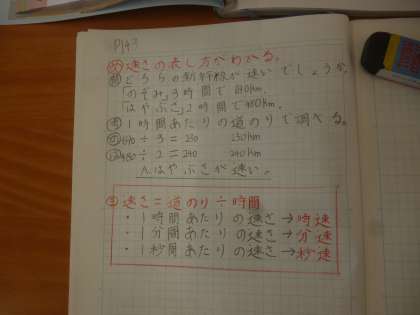 P143
め 速さの表し方がわかる。
問 どちらの新幹線が速いでしょうか。
「のぞみ」3時間で690km.
「はやぶさ」2時間で480km.
考 1時間あたりの道のりで調べる。
690÷3=230 230km
480÷2=240 240km
A.はやぶさが速い。
ま 速さ=道のり÷時間
・1時間あたりの速さ→時速
・1分間あたりの速さ→分速
・1秒間あたりの速さ→秒速